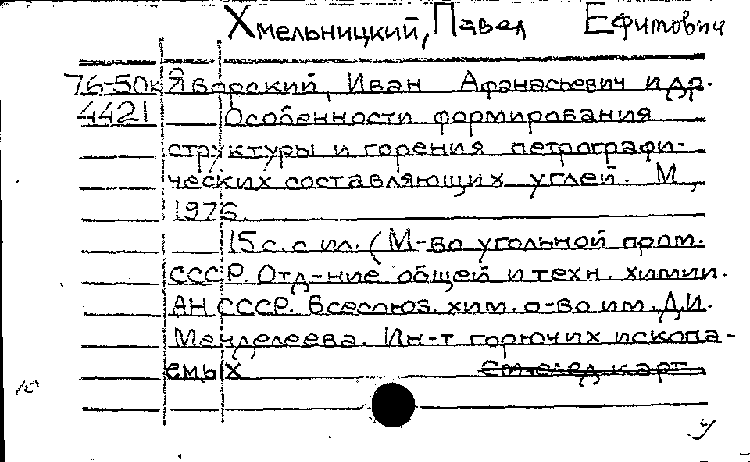 Хмельницкий, Павел Ефимович
76-50к Яворский, Иван Афанасьевич и др.
4421 Особенности формирования
структуры и горения петрографи-
ческих составляющих углей. М.,
1976.
15 с. с ил. (М-во угольной пром.
СССР. Отд-ние общей и техн. химии.
АН СССР. Всесоюз. хим. о-во им. Д.И.
Менделеева. Ин-т горючих ископа-
емых См. след. карт.
У